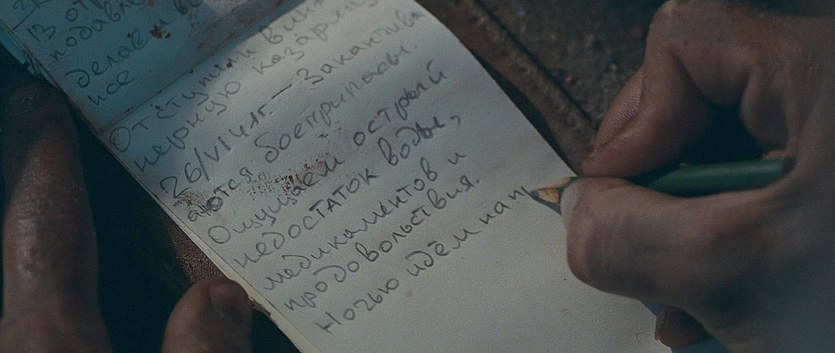 подавле
делаем в
ное
Отступили в
нерную казарму
26/VI 41г. — Заканчива
аются боеприпасы.
Ощущаем острый
недостаток воды,
медикаментов и
продовольствия.
Ночью идём на п